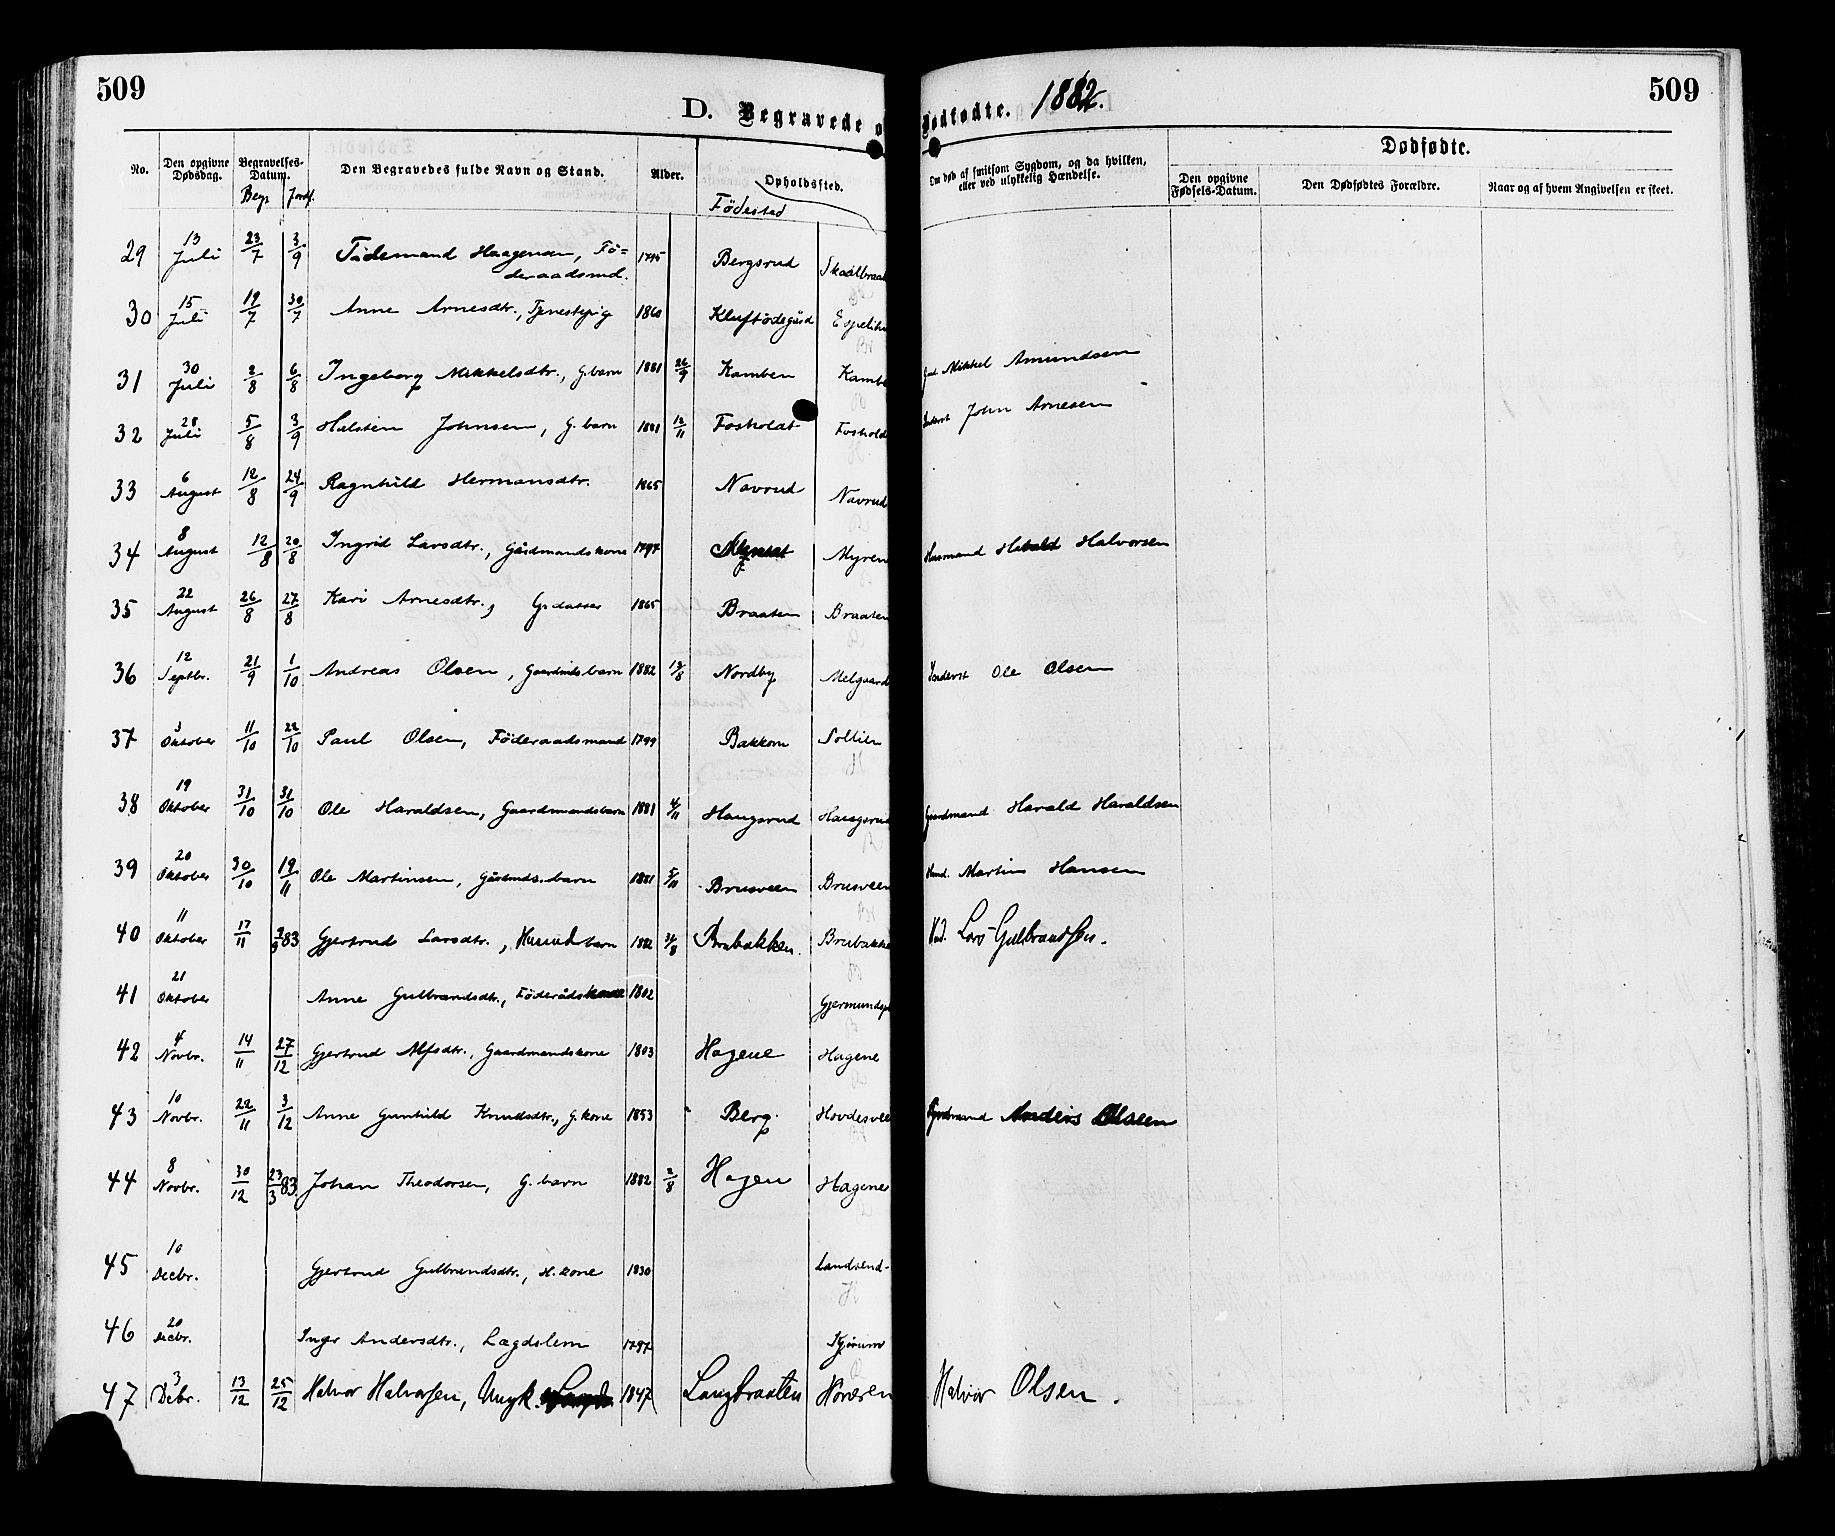 509
509
D. Begravede o
Dødfødte. 1882.
No.
Den opgivne Dødsdag.
Begravelses-Datum.
Begr. Jordf.
Den Begravedes fulde Navn og Stand.
Alder.
Födested
Opholdsted.
Om død af smitsom Sygdom, og da hvilken, eller ved ulykkelig Hændelse.
Dødfødte.
Den opgivne Fødsels-Datum.
Den Dødfødtes Forældre.
Naar og af hvem Angivelsen er skeet.
29 13 Juli 23/7 3/9 Tidemand Haagensen, Fö=deraadsmd. 1795 Bergsrud Skaalbraat
30 15 Juli 19/7 30/7 Anne Arnesdtr., Tjenestepig 1860 Kluftödegård
31 30 Juli 2/8 6/8 Ingeborg Mikkelsdtr., G.barn 1881 26/9 Kamben Kambe Mikkel Amundsen
32 28 Juli 5/8 3/9 Halsten Johnsen, G.barn 1881 12/11 Fosholdt Foshold Inderst John Arnesen
33 6 August 12/8 24/9 Ragnhild Hermansdtr. 1865 Navrud Navrud
34 8 August 12/8 20/8 Ingrid Larsdtr., Gårdmandskone 1797 Myren Husmand Halvorsen
35 22 August 26/8 27/8 Kari Arnesdtr., G.datter 1865 Braaten Braaten
36 12 Septbr. 21/9 1/10 Andreas Olsen, Gaardmdsbarn 1882 12/8 Nordby Melgaard Inderst Ole Olsen
37 3 Oktober 11/10 22/10 Paul Olsen, Föderaadsmand 1799 Bakkom Sollien
38 19 Oktober 31/10 31/10 Ole Haraldsen, Gaardmandsbarn 1881 4/11 Haugsrud Haugsrud Gaardmand Harald Haraldsen
39 20 Oktober 30/10 19/11 Ole Martinsen, Gårdmds.barn 1881 5/11 Brusveen Brusveen Martin Hansen
40 11 Oktober 17/11 2/3 83 Gjertrud Larsdtr., Husmd.barn 1882 31/8 Brubakken. Brubakke Lars Gulbrandsen.
41 21 Oktober Anne Gulbrandsdtr., Föderådskone 1802 Gjermundsp
42 4 Novbr. 14/11 27/12 Gjertrud Alfsdtr., Gaardmandskone 1803 Hagene Hagene
43 10 Novbr. 22/11 3/12 Anne Gunhild Knudsdtr., G.kone 1853 Berg Hovdesvee Gårdmand Anders Olsen
44 8 Novbr. 30/12 23/3 83. Johan Theodorsen, G.barn 1882 2/8 Hagen Hagene
45 10 Decbr. Gjertrud Gulbrandsdtr., H.kone 1830 Landsend-
46 20 Decbr. Inger Andersdtr., Lægdslem 1797
47 3 Debr. 13/12 25/12 Halvor Halvorsen, Ungk. 1847 Langbraaten Noreren Halvor Olsen.